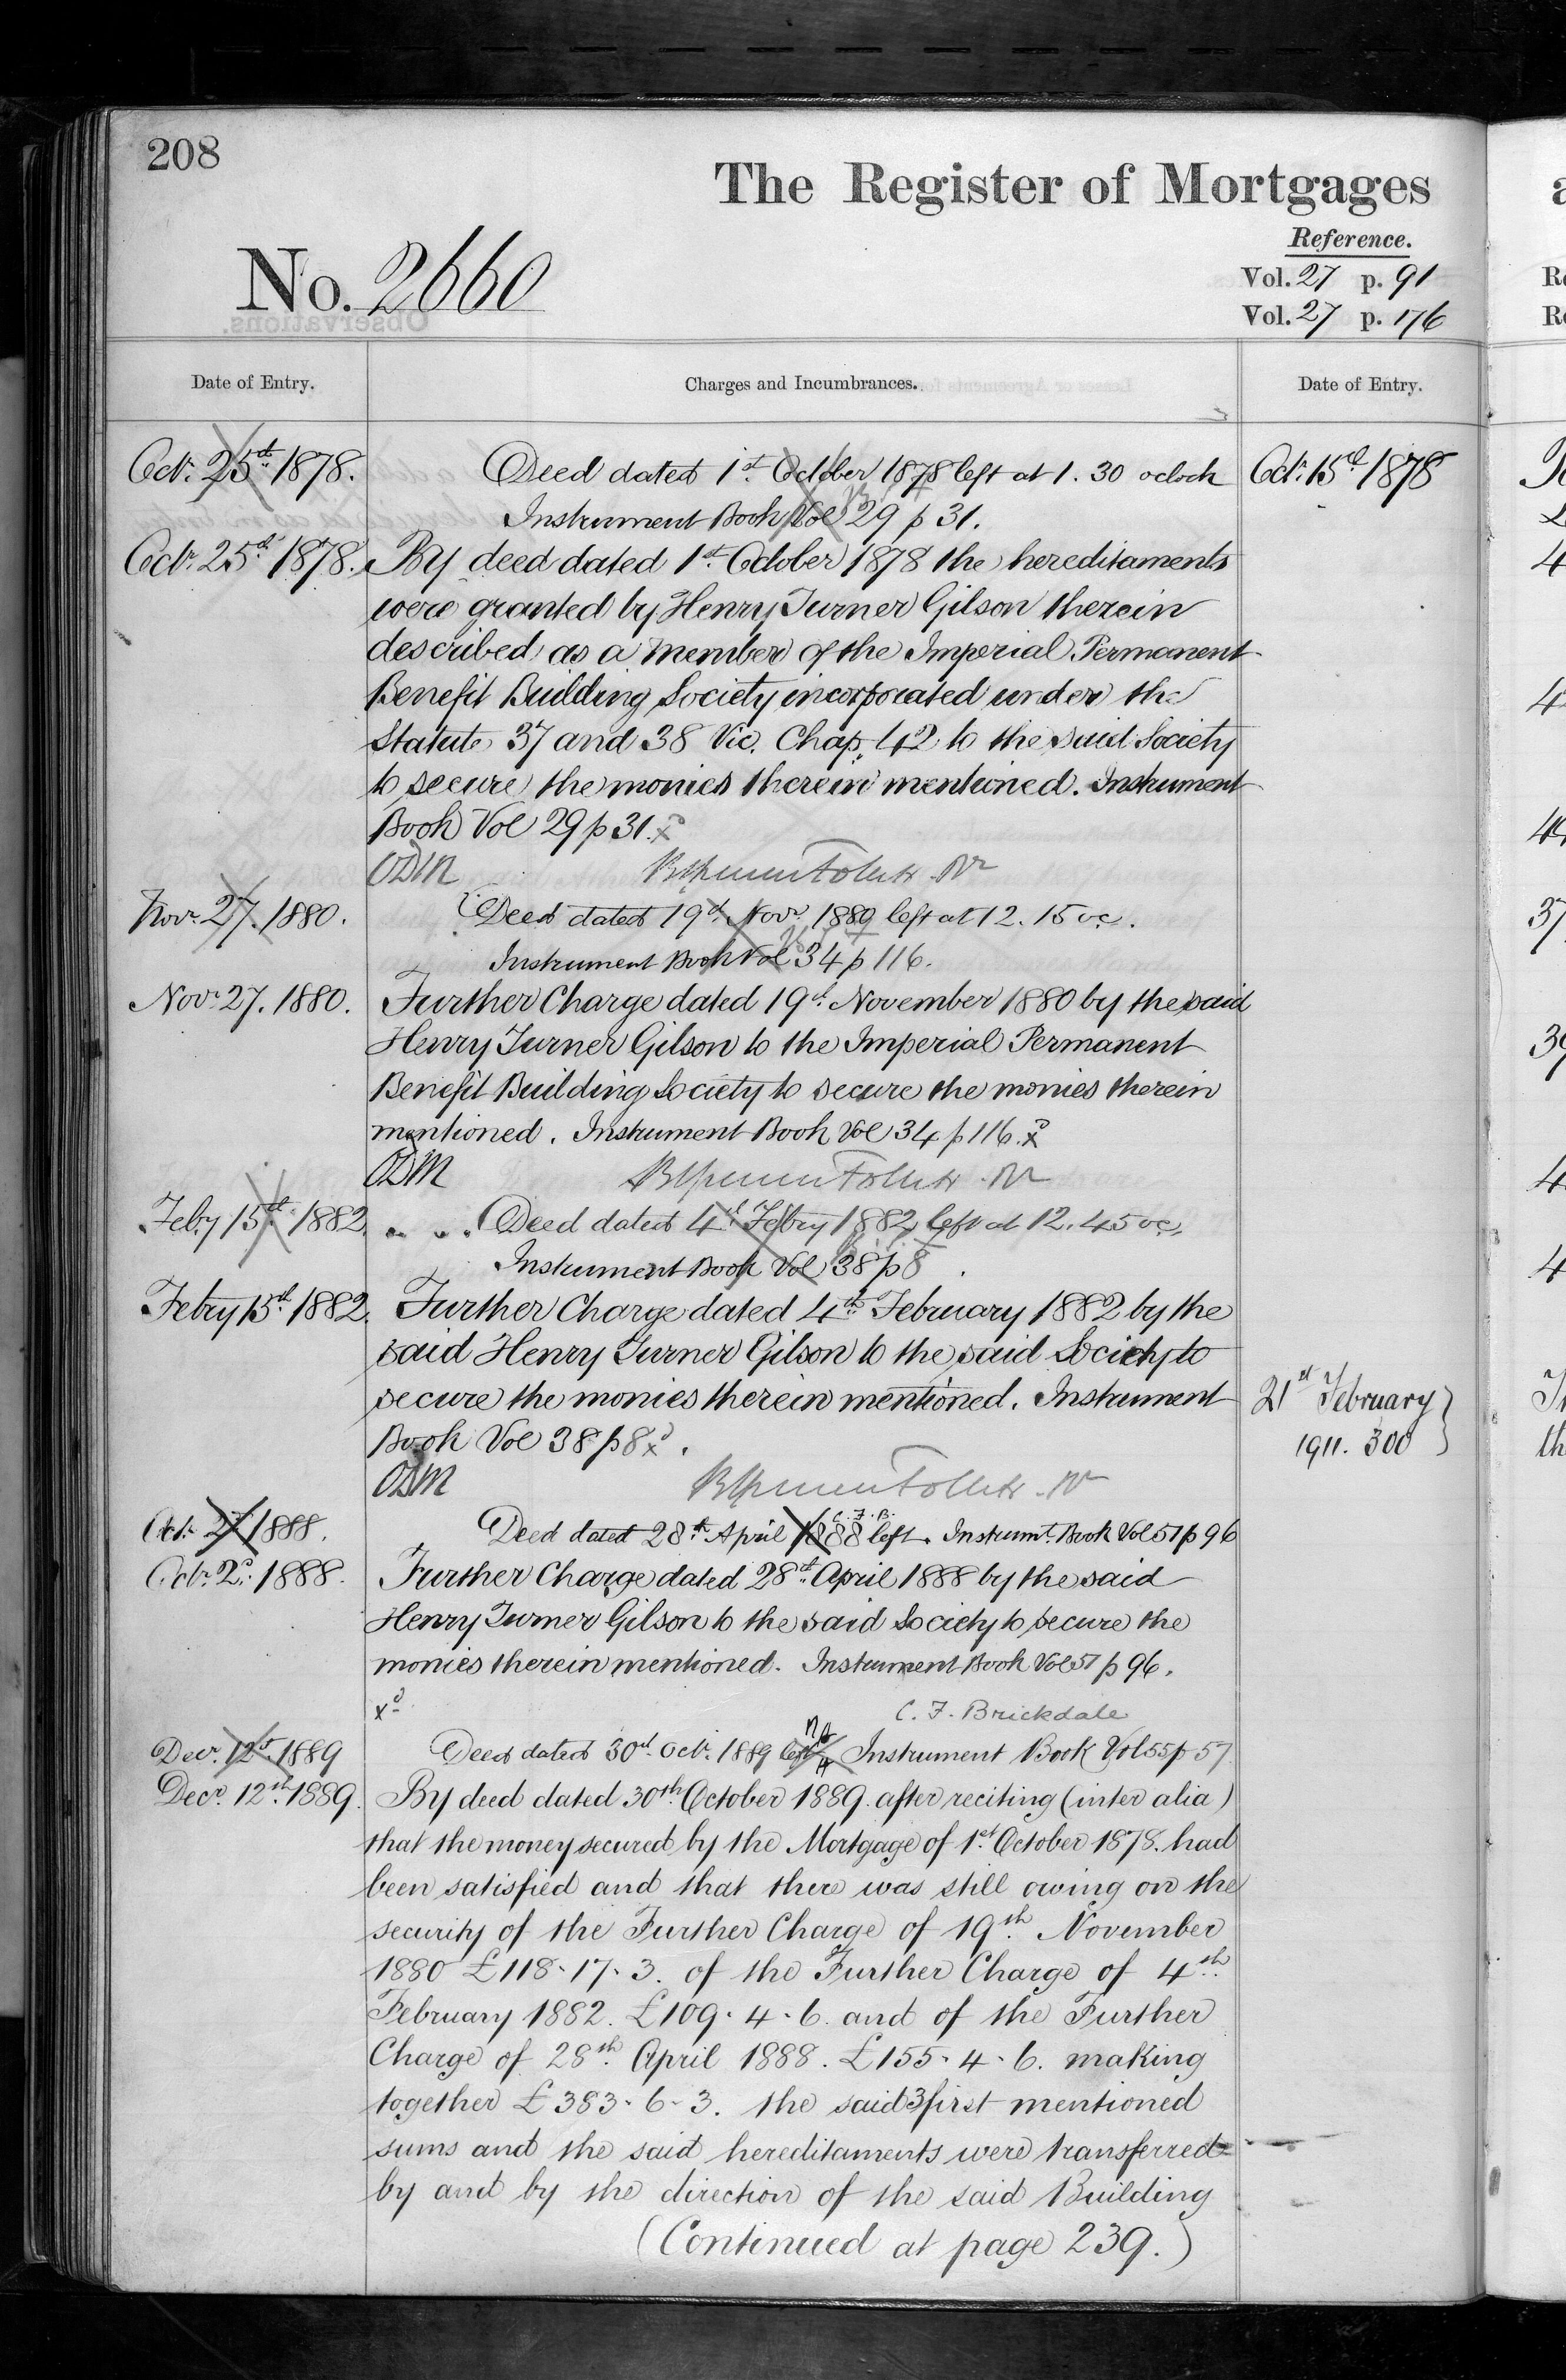 208
The Register of Mortgages
Reference.
No. 2660
Vol. 27 p. 91
Vol. 27 p. 176
Date of Entry.
Charges and Incumbrances.
Date of Entry.
Octr. 25th 1878.
Deed dated 1st October 1878 left at 1.30 oclock
Octr. 15th 1878
Instrument Book Vol 29 p 31.
Octr. 25th 1878.
By deed dated 1st October 1878 the hereditaments
were granted by Henry Turner Gilson therein
described as a member of the Imperial Permanent
Benefit Building Society incorporated under the
Statute 37 and 38 Vic. Chap. 42 to the said Society
to secure the monies therein mentioned. Instrument
Book Vol 29 p 31. xd
ODM
Novr. 27. 1880.
Deed dated 19th Novr. 1880 left at 12.15 oc.
Instrument Book Vol 34 p 116.
Novr. 27. 1880.
Further Charge dated 19th November 1880 by the said
Henry Turner Gilson to the Imperial Permanent
Benefit Building Society to secure the monies therein
mentioned. Instrument Book Vol 34 p 116. xd
ODM
Feby 15th 1882.
Deed dated 4th Febry 1882 left at 12.45 oc.
Instrument Book Vol 38 p 8
Febry 15th 1882.
Further Charge dated 4th February 1882 by the
said Henry Turner Gilson to the said Society to
secure the monies therein mentioned. Instrument
21st February
Book Vol 38 p 8 xd.
1911. 300
ODM
Octr. 2d 1888.
Deed dated 28th April 1888 left. Instrumt. Book Vol 51 p 96
C.F.B.
Octr. 2d. 1888.
Further Charge dated 28th April 1888 by the said
Henry Turner Gilson to the said Society to secure the
monies therein mentioned. Instrument Book Vol 51 p 96.
xd
C. F. Brickdale
Decr. 12th 1889
Deed dated 30th Octr. 1889 left Instrument Book Vol 55 p 57
Decr. 12th 1889.
By deed dated 30th October 1889 after reciting (inter alia)
that the money secured by the Mortgage of 1st October 1878 had
been satisfied and that there was still owing on the
security of the Further Charge of 19th November
1880 £118-17-3. of the Further Charge of 4th
February 1882. £109-4-6 and of the Further
Charge of 28th April 1888. £155-4-6. making
together £383-6-3. the said 3 first mentioned
sums and the said hereditaments were transferred
by and by the direction of the said Building
(Continued at page 239.)